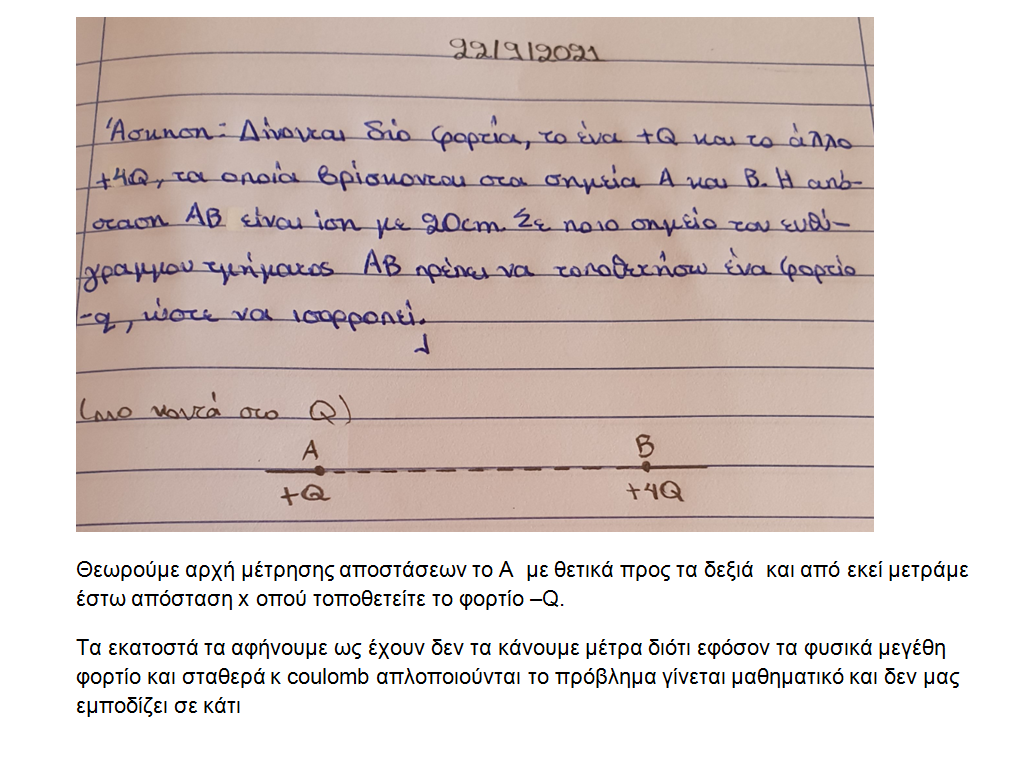 22/9/2021
Άσκηση: Δίνονται δύο φορτία, το ένα +Q και το άλλο
+4Q, τα οποία βρίσκονται στα σημεία Α και Β. Η από-
σταση ΑΒ είναι ίση με 20cm. Σε ποιο σημείο του ευθύ-
γραμμου τμήματος ΑΒ πρέπει να τοποθετήσω ένα φορτίο
-q, ώστε να ισορροπεί.
(πιο κοντά στο Q)
A B
+Q +4Q
Θεωρούμε αρχή μέτρησης αποστάσεων το Α με θετικά προς τα δεξιά και από εκεί μετράμε
έστω απόσταση x οπού τοποθετείτε το φορτίο –Q.
Τα εκατοστά τα αφήνουμε ως έχουν δεν τα κάνουμε μέτρα διότι εφόσον τα φυσικά μεγέθη
φορτίο και σταθερά κ coulomb απλοποιούνται το πρόβλημα γίνεται μαθηματικό και δεν μας
εμποδίζει σε κάτι